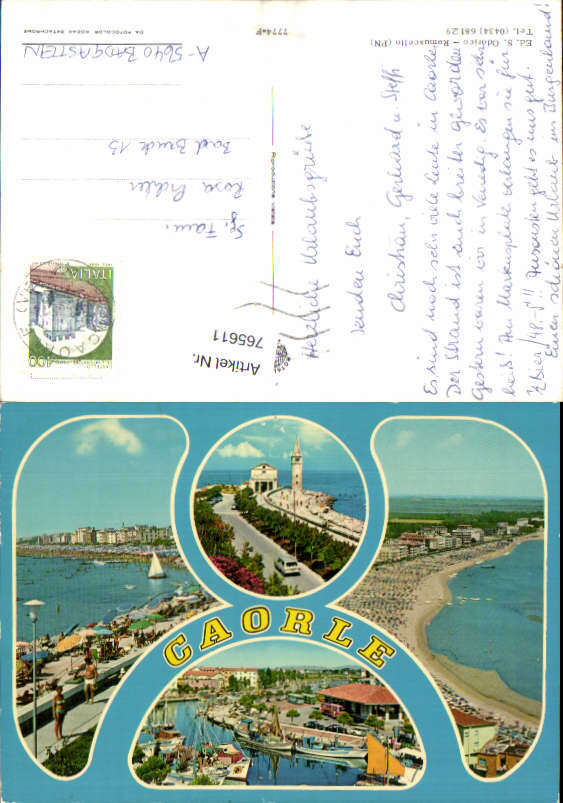 Herzliche Urlaubsgrüße
senden Euch
Christian, Gerhard u. Steffi
Es sind noch sehr viele Leute in Caorle
Der Strand ist auch breiter geworden
Gestern waren wir in Venedig. Es war sehr
heiß! Am Markusplatz verlangen sie für
1 Bier 48.-S!! Ansonsten geht es uns gut.
Euch schönen Urlaub im Burgenland!
Ed. S. Odorico - Ramuscello (PN)
Tel. (0434) 68129
7774-F
DA FOTOCOLOR KODAK EKTACHROME
Riproduzione vietata
Fam.
Rosa Pichler
Bad Bruck 13
A-5640 BADGASTEIN
ITALIA
400
Artikel Nr.
765611
CAORLE